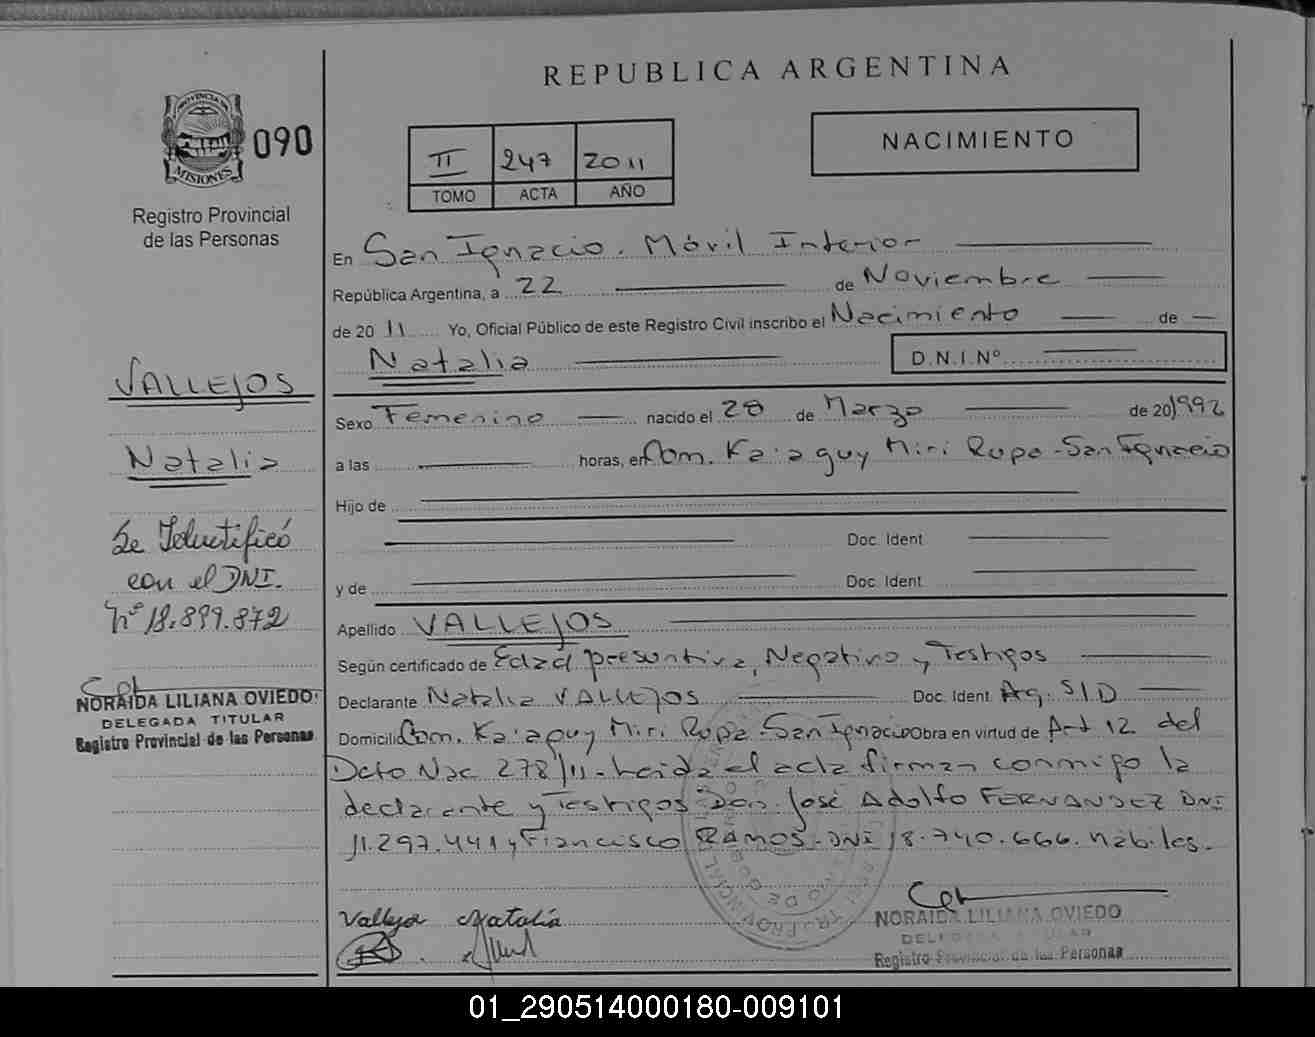 REPUBLICA ARGENTINA
PROVINCIA DE
MISIONES
090
Registro Provincial
de las Personas
II 247 2011
TOMO ACTA AÑO
NACIMIENTO
En San Ignacio. Móvil Interior
República Argentina, a 22 de Noviembre
de 2011 Yo, Oficial Público de este Registro Civil inscribo el Nacimiento de
Natalia D.N.I.Nº
Sexo Femenino nacido el 28 de Marzo de 201992
a las horas, en Com. Ka'aguy Miri Rupa - San Ignacio
Hijo de
Doc. Ident
y de Doc. Ident
Apellido VALLEJOS
Según certificado de Edad presuntiva, Negativo y Testigos
Declarante Natalia VALLEJOS Doc. Ident Arg. S/D
Domicilio Com. Ka'aguy Miri Rupa - San Ignacio Obra en virtud de Art 12 del
Dcto Nac 278/11 - Leida el acta firman conmigo la
declarante y Testigos Don José Adolfo FERNANDEZ DNI
11.297.441 y Francisco RAMOS - DNI 18.740.666. hábiles.
Vallejo Natalia
NORAIDA LILIANA OVIEDO
DELEGADA TITULAR
Registro Provincial de las Personas
VALLEJOS
Natalia
Se Identificó
con el DNI.
Nº 18.899.872
NORAIDA LILIANA OVIEDO
DELEGADA TITULAR
Registro Provincial de las Personas
01_290514000180-009101